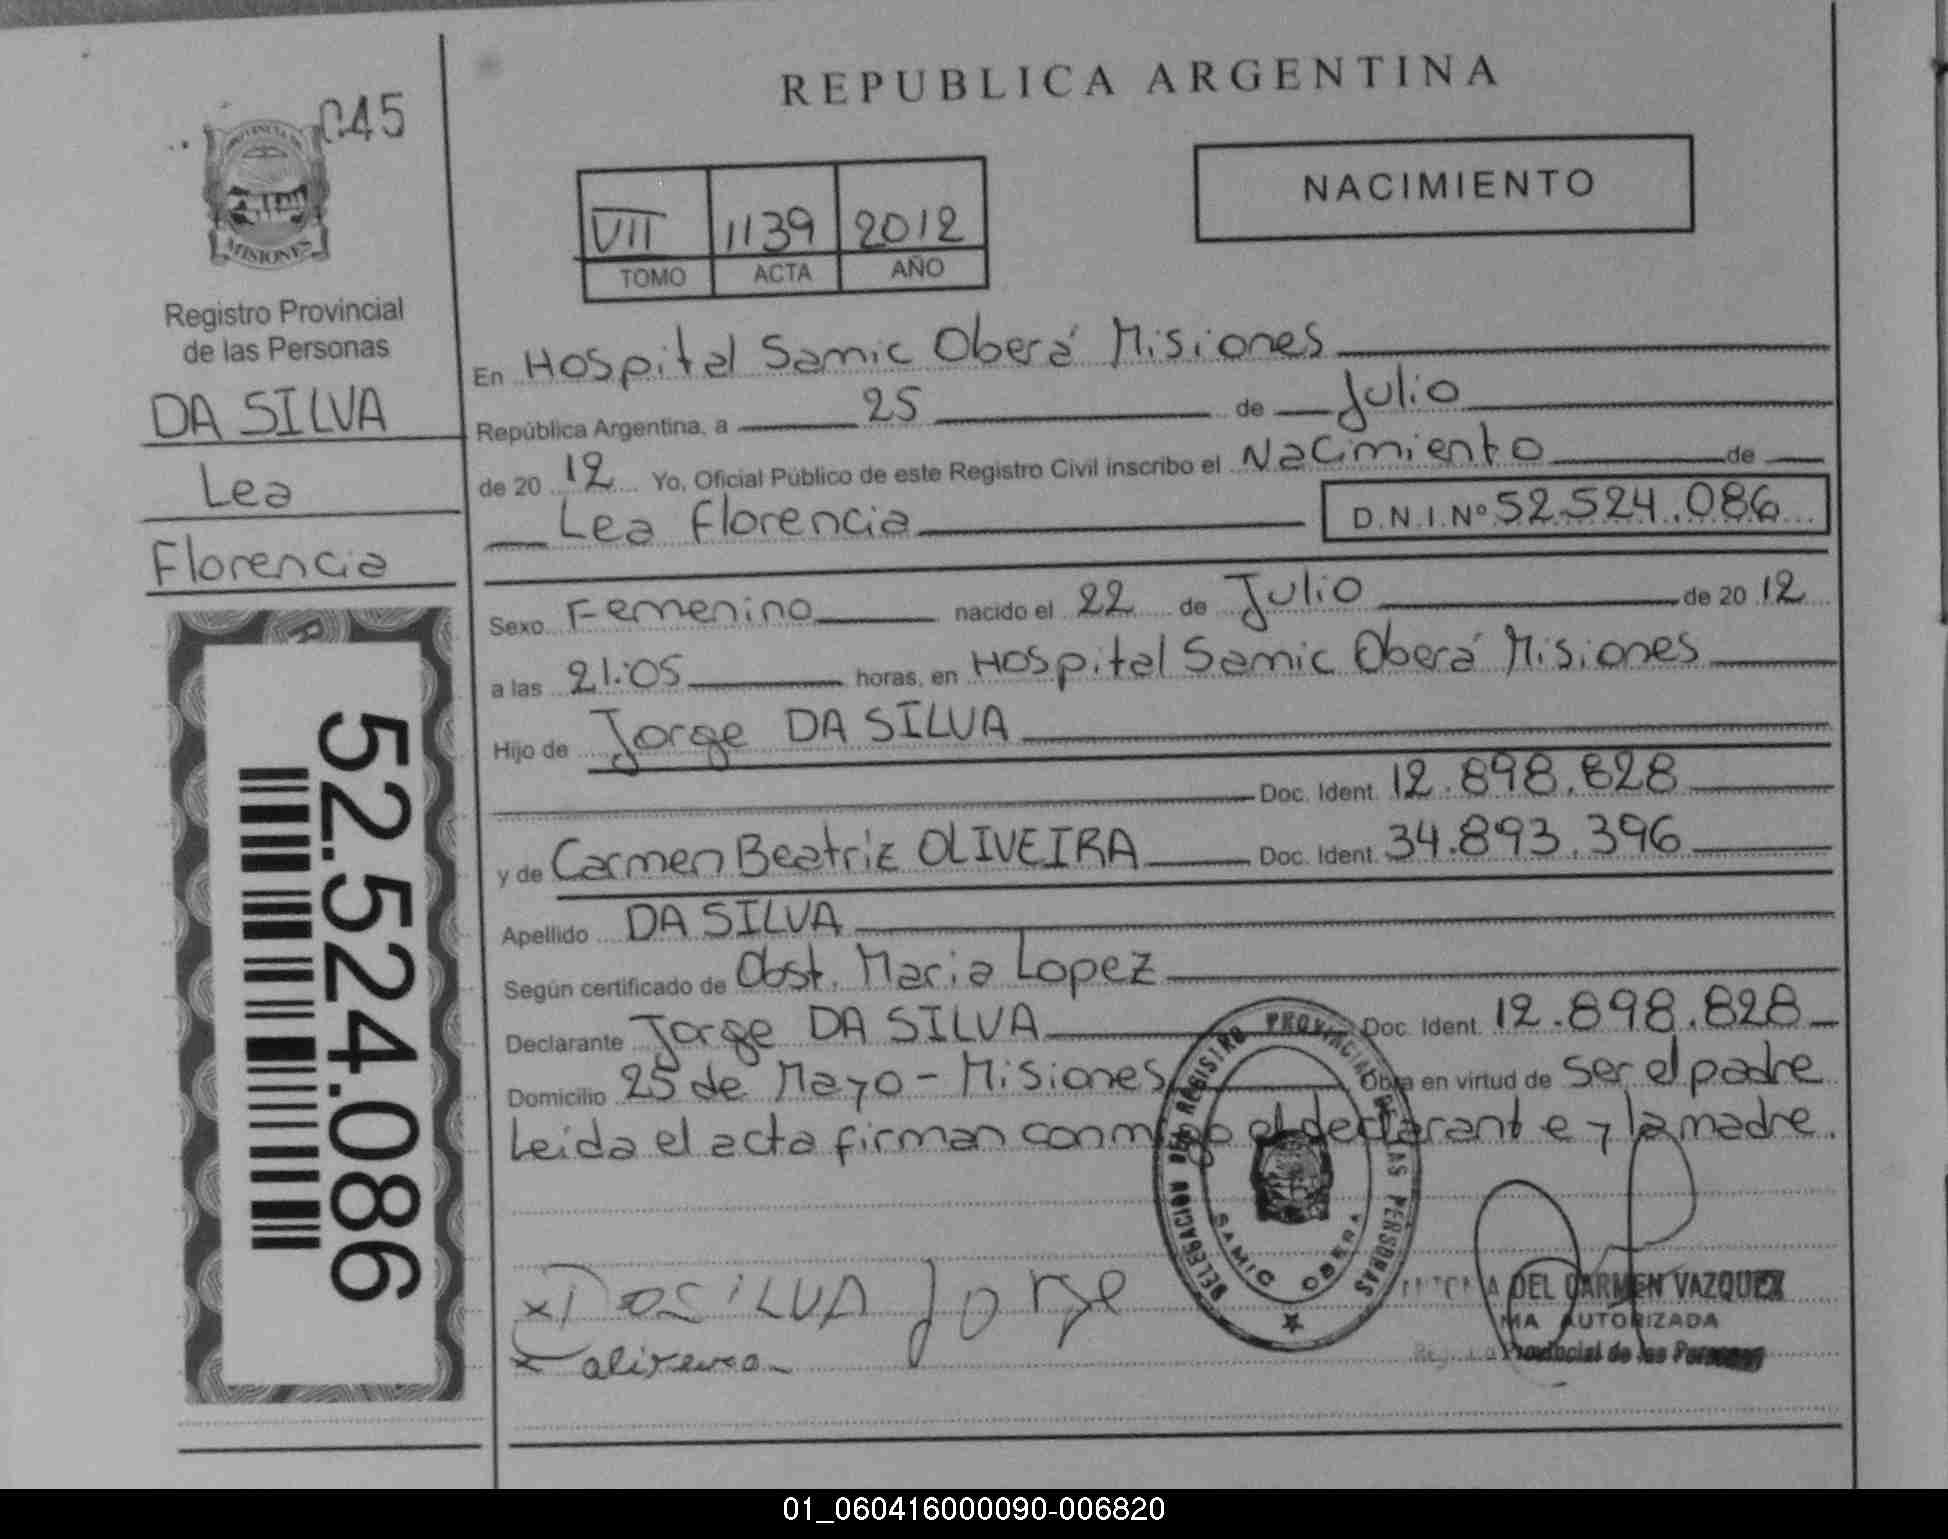 045
PROVINCIA DE
MISIONES
Registro Provincial
de las Personas
DA SILVA
Lea
Florencia
52.524.086
REPUBLICA ARGENTINA
NACIMIENTO
VII 1139 2012
TOMO ACTA AÑO
En Hospital Samic Oberá Misiones
República Argentina, a 25 de Julio
de 2012 Yo, Oficial Público de este Registro Civil inscribo el Nacimiento de
Lea Florencia D.N.I.Nº 52.524.086
Sexo Femenino nacido el 22 de Julio de 2012
a las 21:05 horas, en Hospital Samic Oberá Misiones
Hijo de Jorge DA SILVA
Doc. Ident. 12.898.828
y de Carmen Beatriz OLIVEIRA Doc. Ident. 34.893.396
Apellido DA SILVA
Según certificado de Obst. Maria Lopez
Declarante Jorge DA SILVA Doc. Ident. 12.898.828
Domicilio 25 de Mayo - Misiones Obra en virtud de ser el padre
Leida el acta firman conmigo el declarante y la madre.
DELEGACION DEL REGISTRO PROVINCIAL DE LAS PERSONAS
SAMIC OBERA
x DASILVA Jorge
DEL CARMEN VAZQUEZ
AUTORIZADA
Provincial de las Personas
01_060416000090-006820